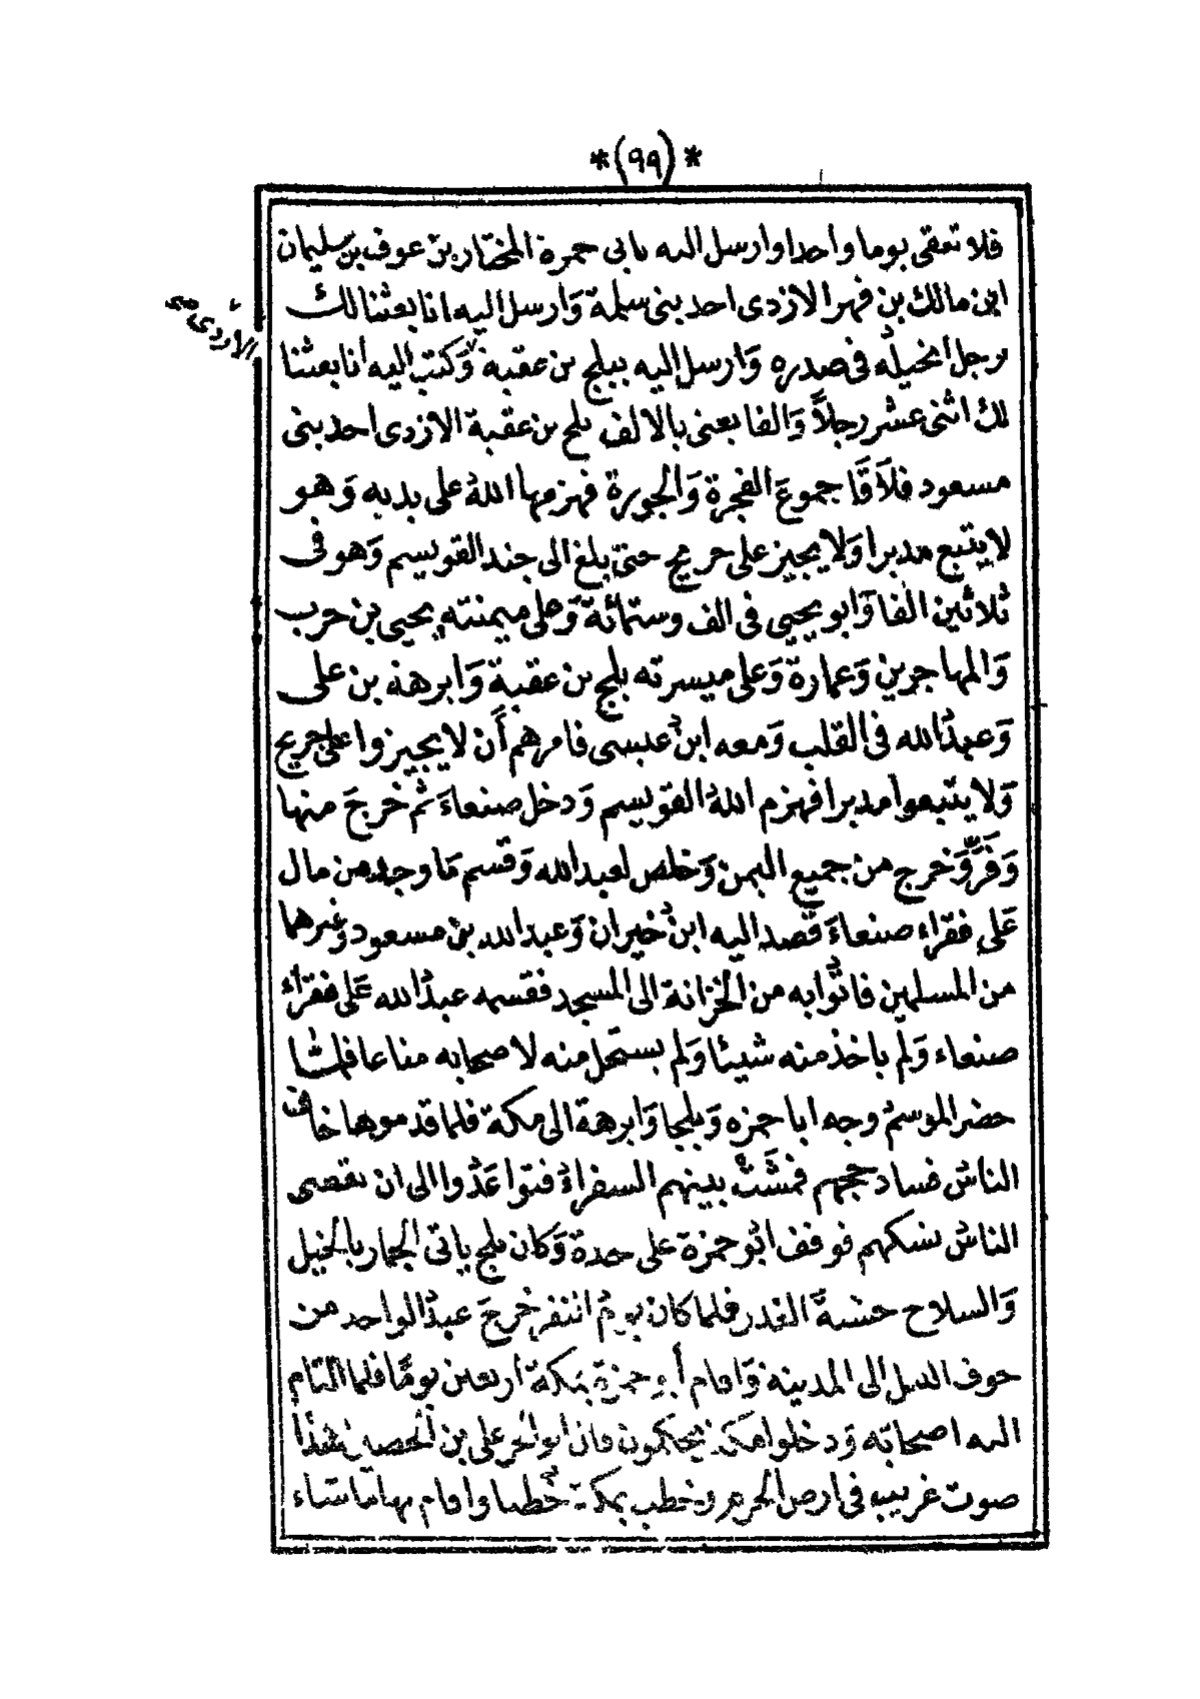 *(٩٩)*
فلا تبقى يوما واحدا وارسل اليه بابى حمزة المختار بن عوف بن سليمان
ابن مالك بن فهر الازدى احد بنى سلمة وَارسل اليه انا بعثنا لك
الازدى صح
برجل انجيله فى صدره وَارسل اليه ببلج بن عقبة وَكتب اليه انا بعثنا
لك اثنى عشر رجلاً وَالفا يعنى بالالف بلج بن عقبة الازدى احد بنى
مسعود فلاَقَا جموعَ الفجرة وَالجورة فهزمها اللهُ على يديه وَهو
لا يتبع مدبرا وَلا يجيز على جريح حتى بلغ الى جند القويسم وَهو فى
ثلاثين الفا وَابو يحيى فى الف وستمائة وَعلى ميمنته يحيى بن حرب
وَالمهاجرين وَعمارة وَعلى ميسرته بلج بن عقبة وَابرهة بن على
وَعبدُ الله فى القلب وَمعه ابنُ عيسى فامرهم أَن لا يجيزوا على جريح
وَلا يتبعوا مدبرا فهزم اللهُ القويسم وَدخل صنعاءَ ثم خرجَ منها
وَفَرَّ وَخرج من جميع اليمن وَخلص لعبد الله وَقسم مَا وجد من مال
عَلى فقراء صنعاءَ قصد اليه ابنُ خيران وَعبد الله بن مسعود وَغيرهما
من المسلمين فاتوا به من الخزانة الى المسجد فقسمه عبدُ الله عَلى فقراءِ
صنعاء وَلم ياخذ منه شيئا وَلم يستحل منه لاصحابه متاعا فلمَّا
حضر الموسمُ وجه ابا حمزه وَبلجا وَابرهة الى مكة فلما قدموها خاف
الناسُ فساد حجهم فمشَتْ بينهم السفراءُ فتواعَدُوا الى ان يقضى
الناسُ نسكهم فوقف ابو حمزة على حدة وَكان بلج ياتى الجمار بالخيل
وَالسلاح خشية الغدر فلما كان يومُ النفر خرجَ عبدُ الواحد من
جوف الليل الى المدينة وَاقام أبو حمزة بمكة اربعين يومًا فلما التام
اليه اصحابه وَدخلوا مكة يحكمون قال ابو الحر على بن الحصين هذا
صوت غريب فى ارض الحرم وخطب بمكة خطبا واقام بها ما شاء